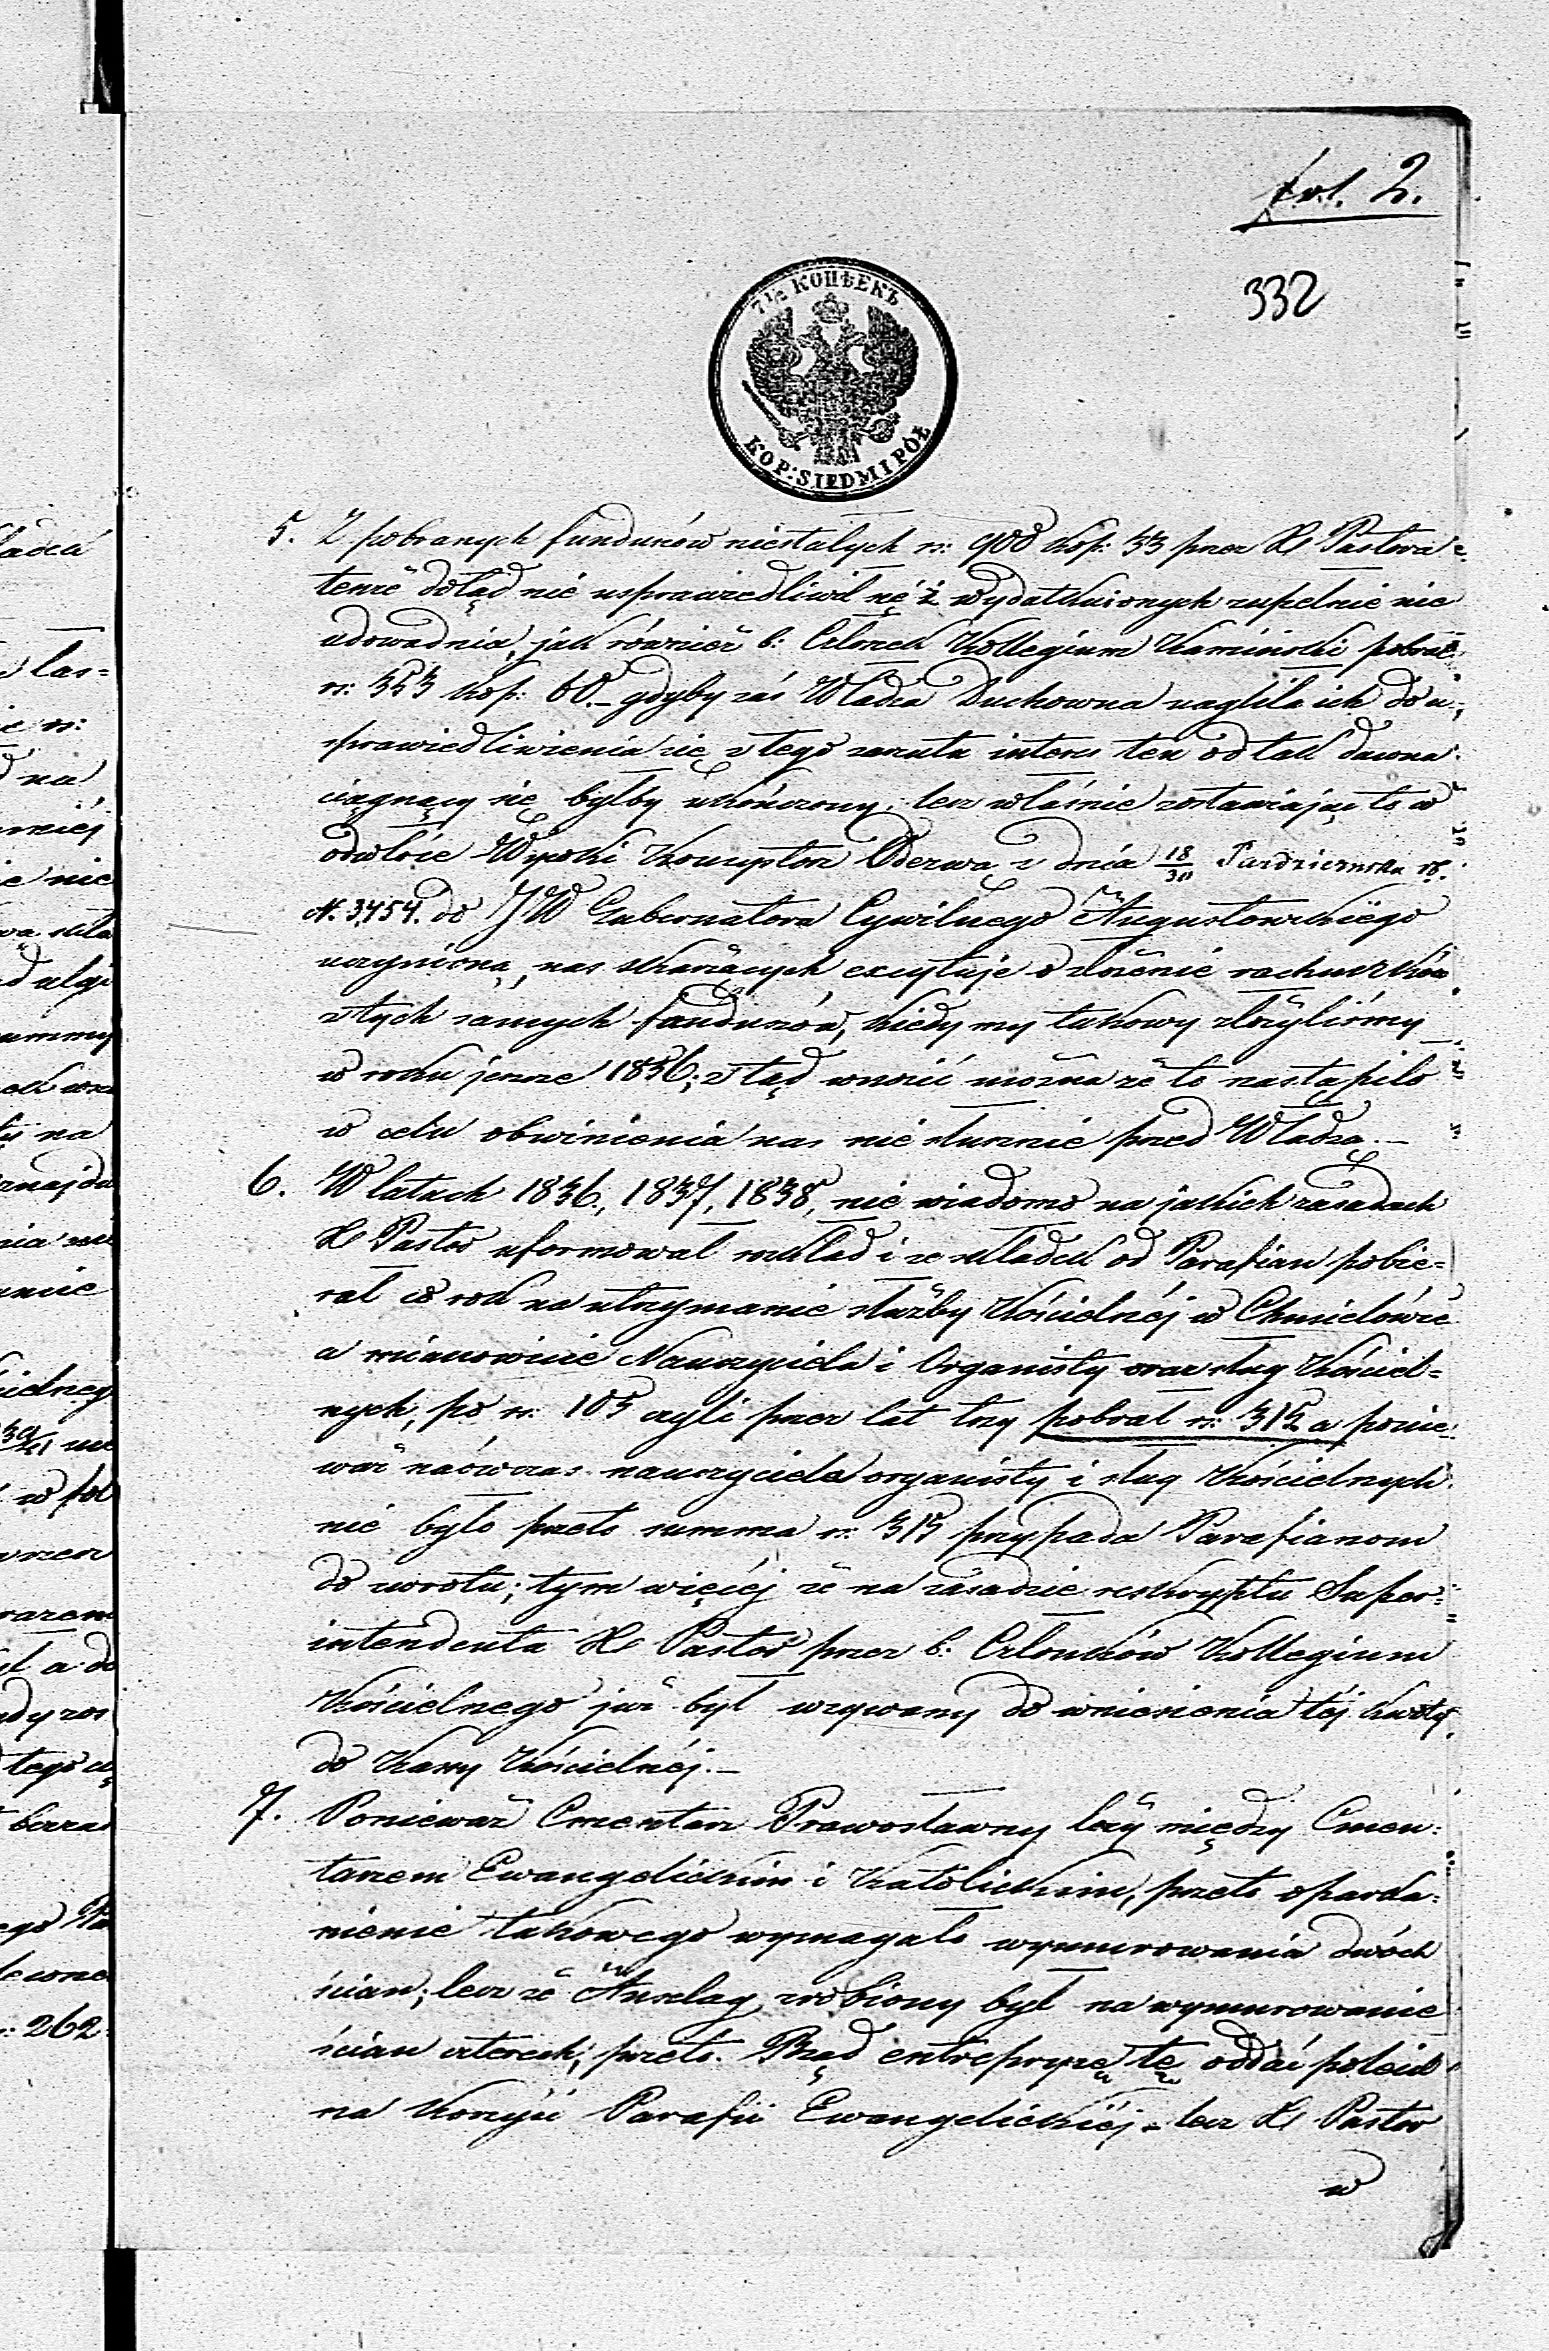 fol. 2.
332
7 1/2 КОПѢЕКЪ
KOP: SIEDM I PÓŁ
5. Z pobranych funduszów niestałych rs: 908 kop: 33 przez X Pastora
tenże dotąd nie usprawiedliwił się i wydatkuionych zupełnie nie
udowadnia, jak również b: Członek Kollegium Kamiński pobrał
rs: 353 kop: 60._ gdyby zaś Władza Duchowna nagliła ich do u=
sprawiedliwienia się z tego zarzutu interes ten od tak dawna
ciągnący się byłby ukończony; lecz właśnie zostawiając to w
odwłoce Wysoki Konsystorz Odezwą z dnia 18/30 Października rb.
N. 3454. do JW Gubernatora Cywilnego Augustowskiego
uczynioną, nas skarżących excytuje o złożenie rachunków
z tych samych funduszów, kiedy my takowy złożyliśmy
w roku jeszcze 1856; ztąd wnosić można że to nastąpiło
w celu obwinienia nas nie słusznie przed Władzą._
6. W latach 1836., 1837, 1838, nie wiadomo na jakich zasadach
X Pastor uformował rozkład i ze składek od Parafian pobie=
rał co rok na utrzymanie służby Kościelnéj w Chmielówce
a mianowicie Nauczyciela i Organisty oraz sług Kościel=
nych, po rs: 105 czyli przez lat trzy pobrał rs: 315 a ponie=
waż naówczas nauczyciela organisty i sług Kościelnych
nie było przeto summa rs: 315 przypada Parafianom
do zwrotu; tym więcéj że na zasadzie reskryptu Super=
intendenta X Pastor przez b: Członków Kollegium
Kościelnego już był wzywany do wniesienia téj kwoty
do Kassy Kościelnéj._
7. Ponieważ Cmentarz Prawosławny leży między Cmen=
tarzem Ewangelickim i Katolickim, przeto oparka=
nienie takowego wymagało wymurowania dwóch
ścian; lecz że Anszlag zrobiony był na wymurowanie
ścian czterech; przeto Rząd entrepryzę tę oddać polecił
na korzyść Parafii Ewangelickiéj - lecz X Pastor
w